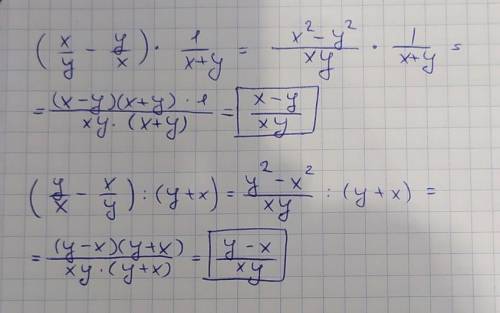 (x/y - y/x) · 1/(x+y) = (x² - y²)/(xy) · 1/(x+y) =
= ((x-y)(x+y) · 1)/(xy · (x+y)) = (x-y)/(xy)
(y/x - x/y) : (y+x) = (y² - x²)/(xy) : (y+x) =
= ((y-x)(y+x))/(xy · (y+x)) = (y-x)/(xy)